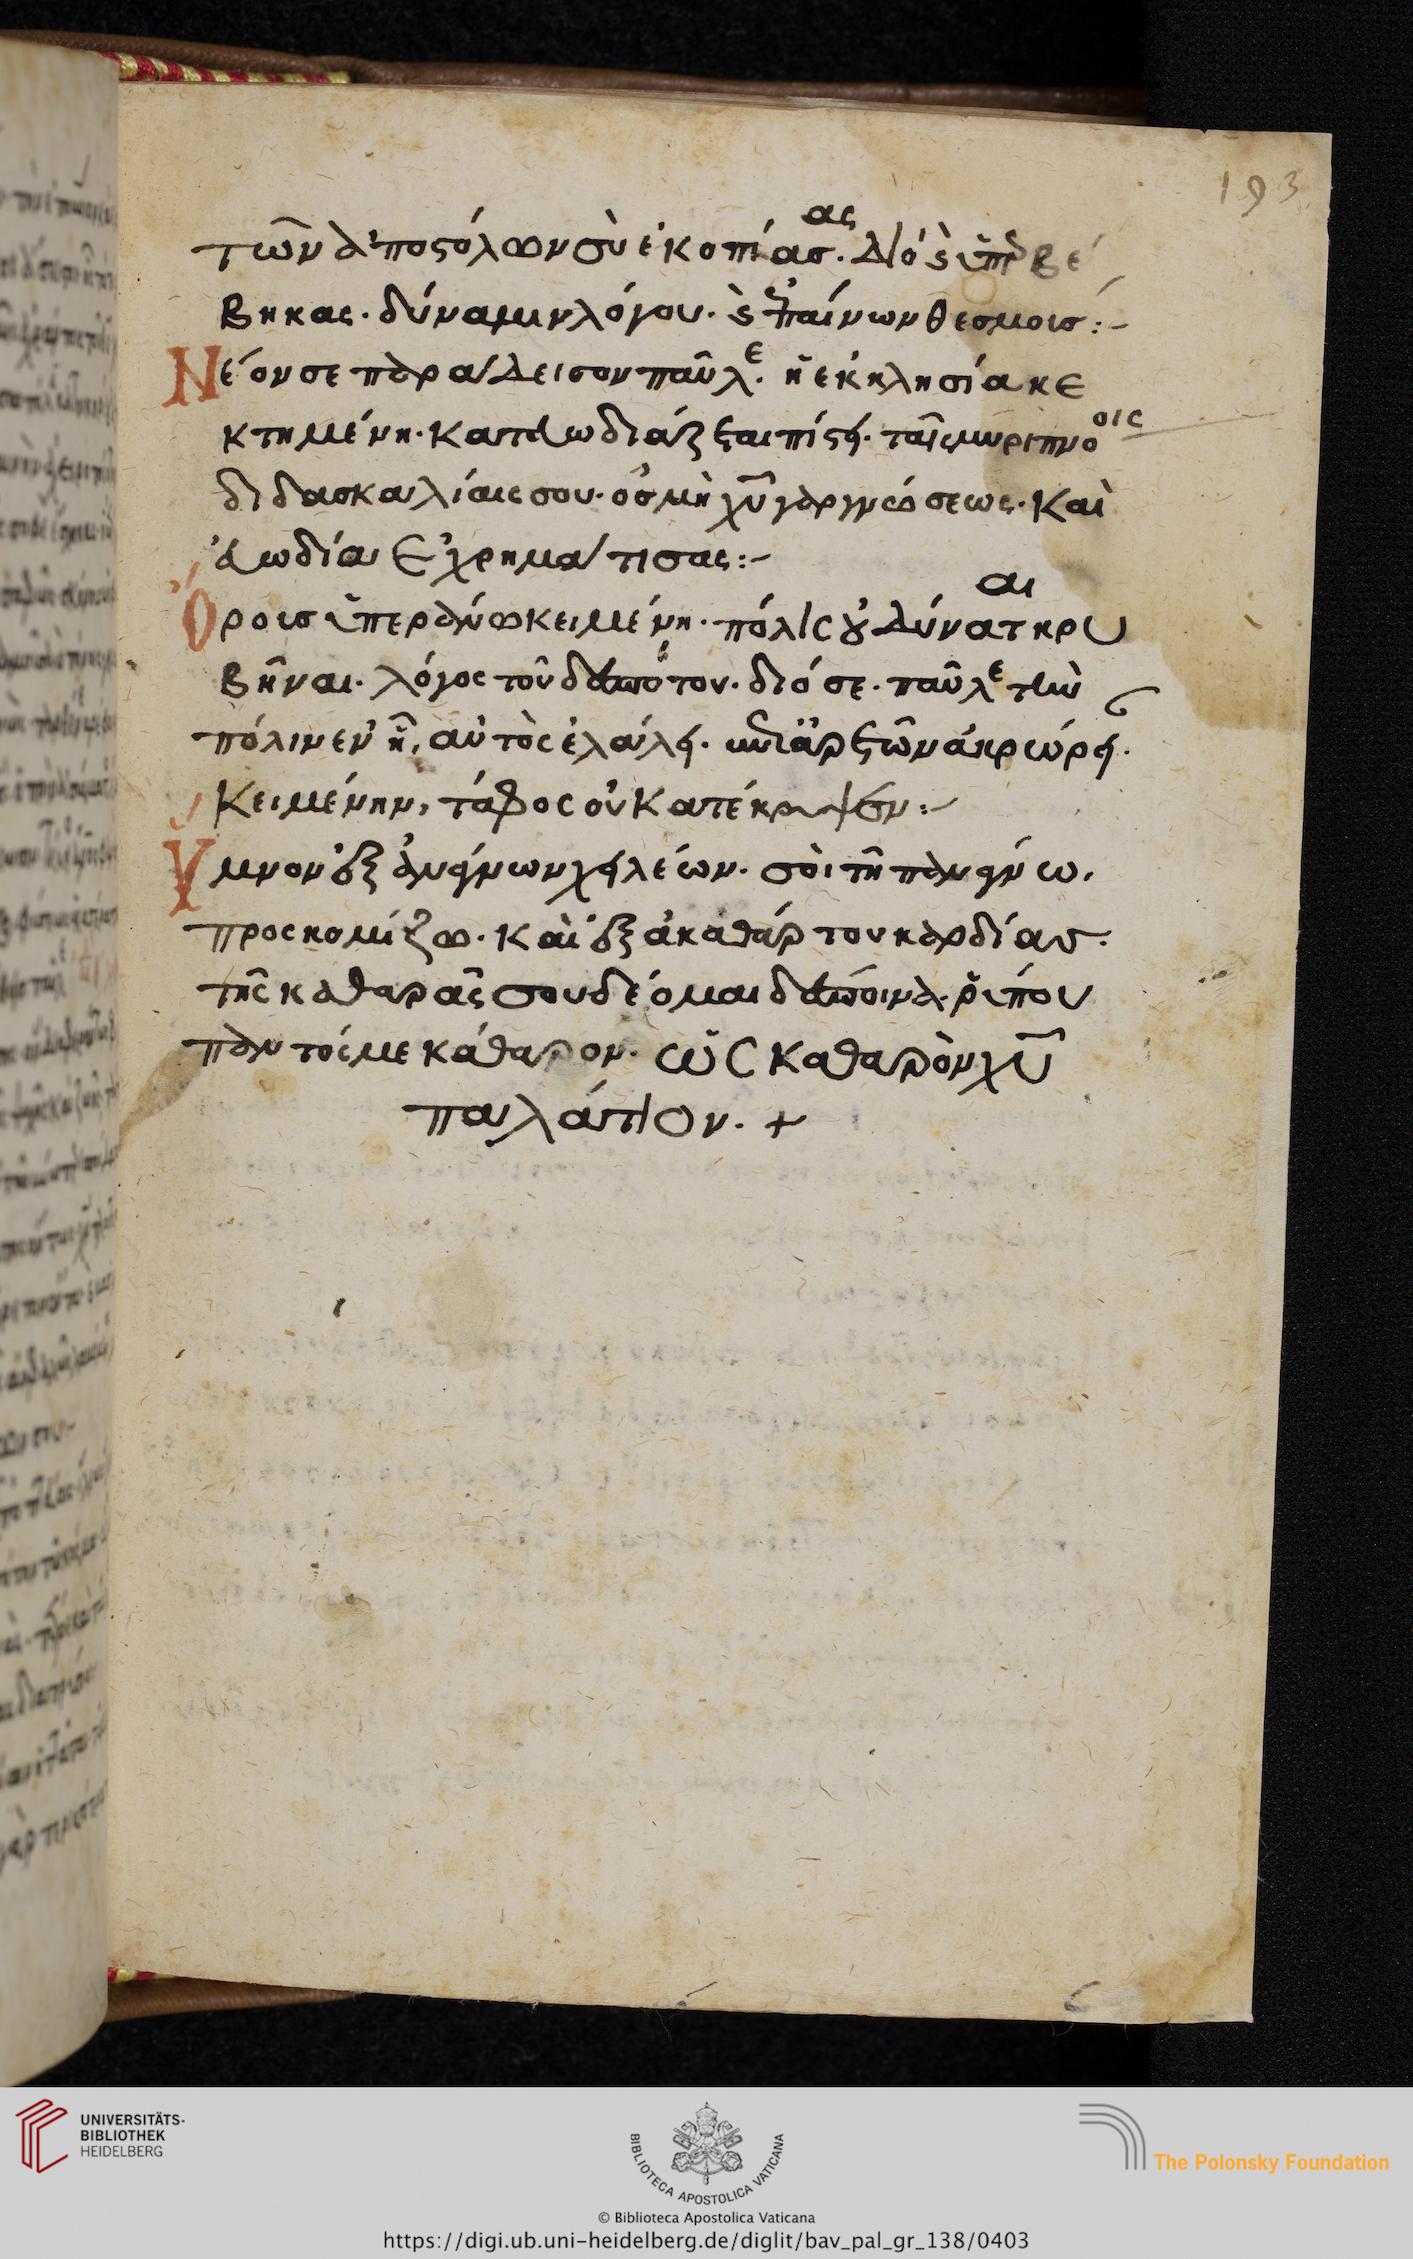 193
τῶν ἀποστόλων σὺ ἐκοπίασας. Διὸ καὶ ὑπερβέ
βηκας. δύναμιν λόγου. καὶ ἐπαίνων θεσμοισ:-
Νέον σε παράδεισον παῦλε. ἡ ἐκκλησία κε
κτημένη. κατευωδιάζεται πίστει. ταῖς μυριπνόοις
διδασκαλίαις σου. ὀσμὴ χῦ γὰρ γνώσεως. Καὶ
εὐωδία ἐχρημάτισας:-
Ὄροισ ὑπεράνω κειμένη. πόλις οὐ δύναται κρυ
βῆναι. λόγος τοῦ δεσπότου. διό σε. παῦλε τὴν
πόλιν ἐν ᾗ, αὐτὸς ἐλάλει. ἀρετῶν ἀκρωρεία.
Κειμένην, τάφος οὐ κατέκρυψεν:-
Ὕμνον ἐξ ἀναγνων χειλέων. σοὶ τῇ παναγνω.
προσκομίζω. Καὶ ἐξ ἀκαθάρτου καρδίασ.
τῆς καθαρᾶς σου δέομαι δέσποινα. ῥύπου
παντός με κάθαρον. ὡς καθαρὸν χῦ
παλάτιον. +
UNIVERSITÄTS-
BIBLIOTHEK
HEIDELBERG
BIBLIOTECA APOSTOLICA VATICANA
The Polonsky Foundation
© Biblioteca Apostolica Vaticana
https://digi.ub.uni-heidelberg.de/diglit/bav_pal_gr_138/0403